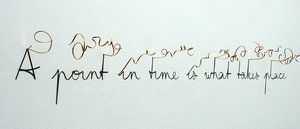 A point in time is what takes place